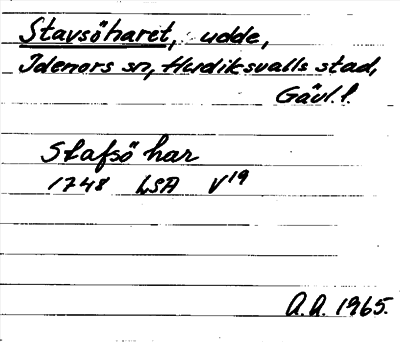 Stavsöharet, udde,
Idenors sn, Hudiksvalls stad,
Gävl. l.
Stafsö har
1748 LSA V19
A.A. 1965.